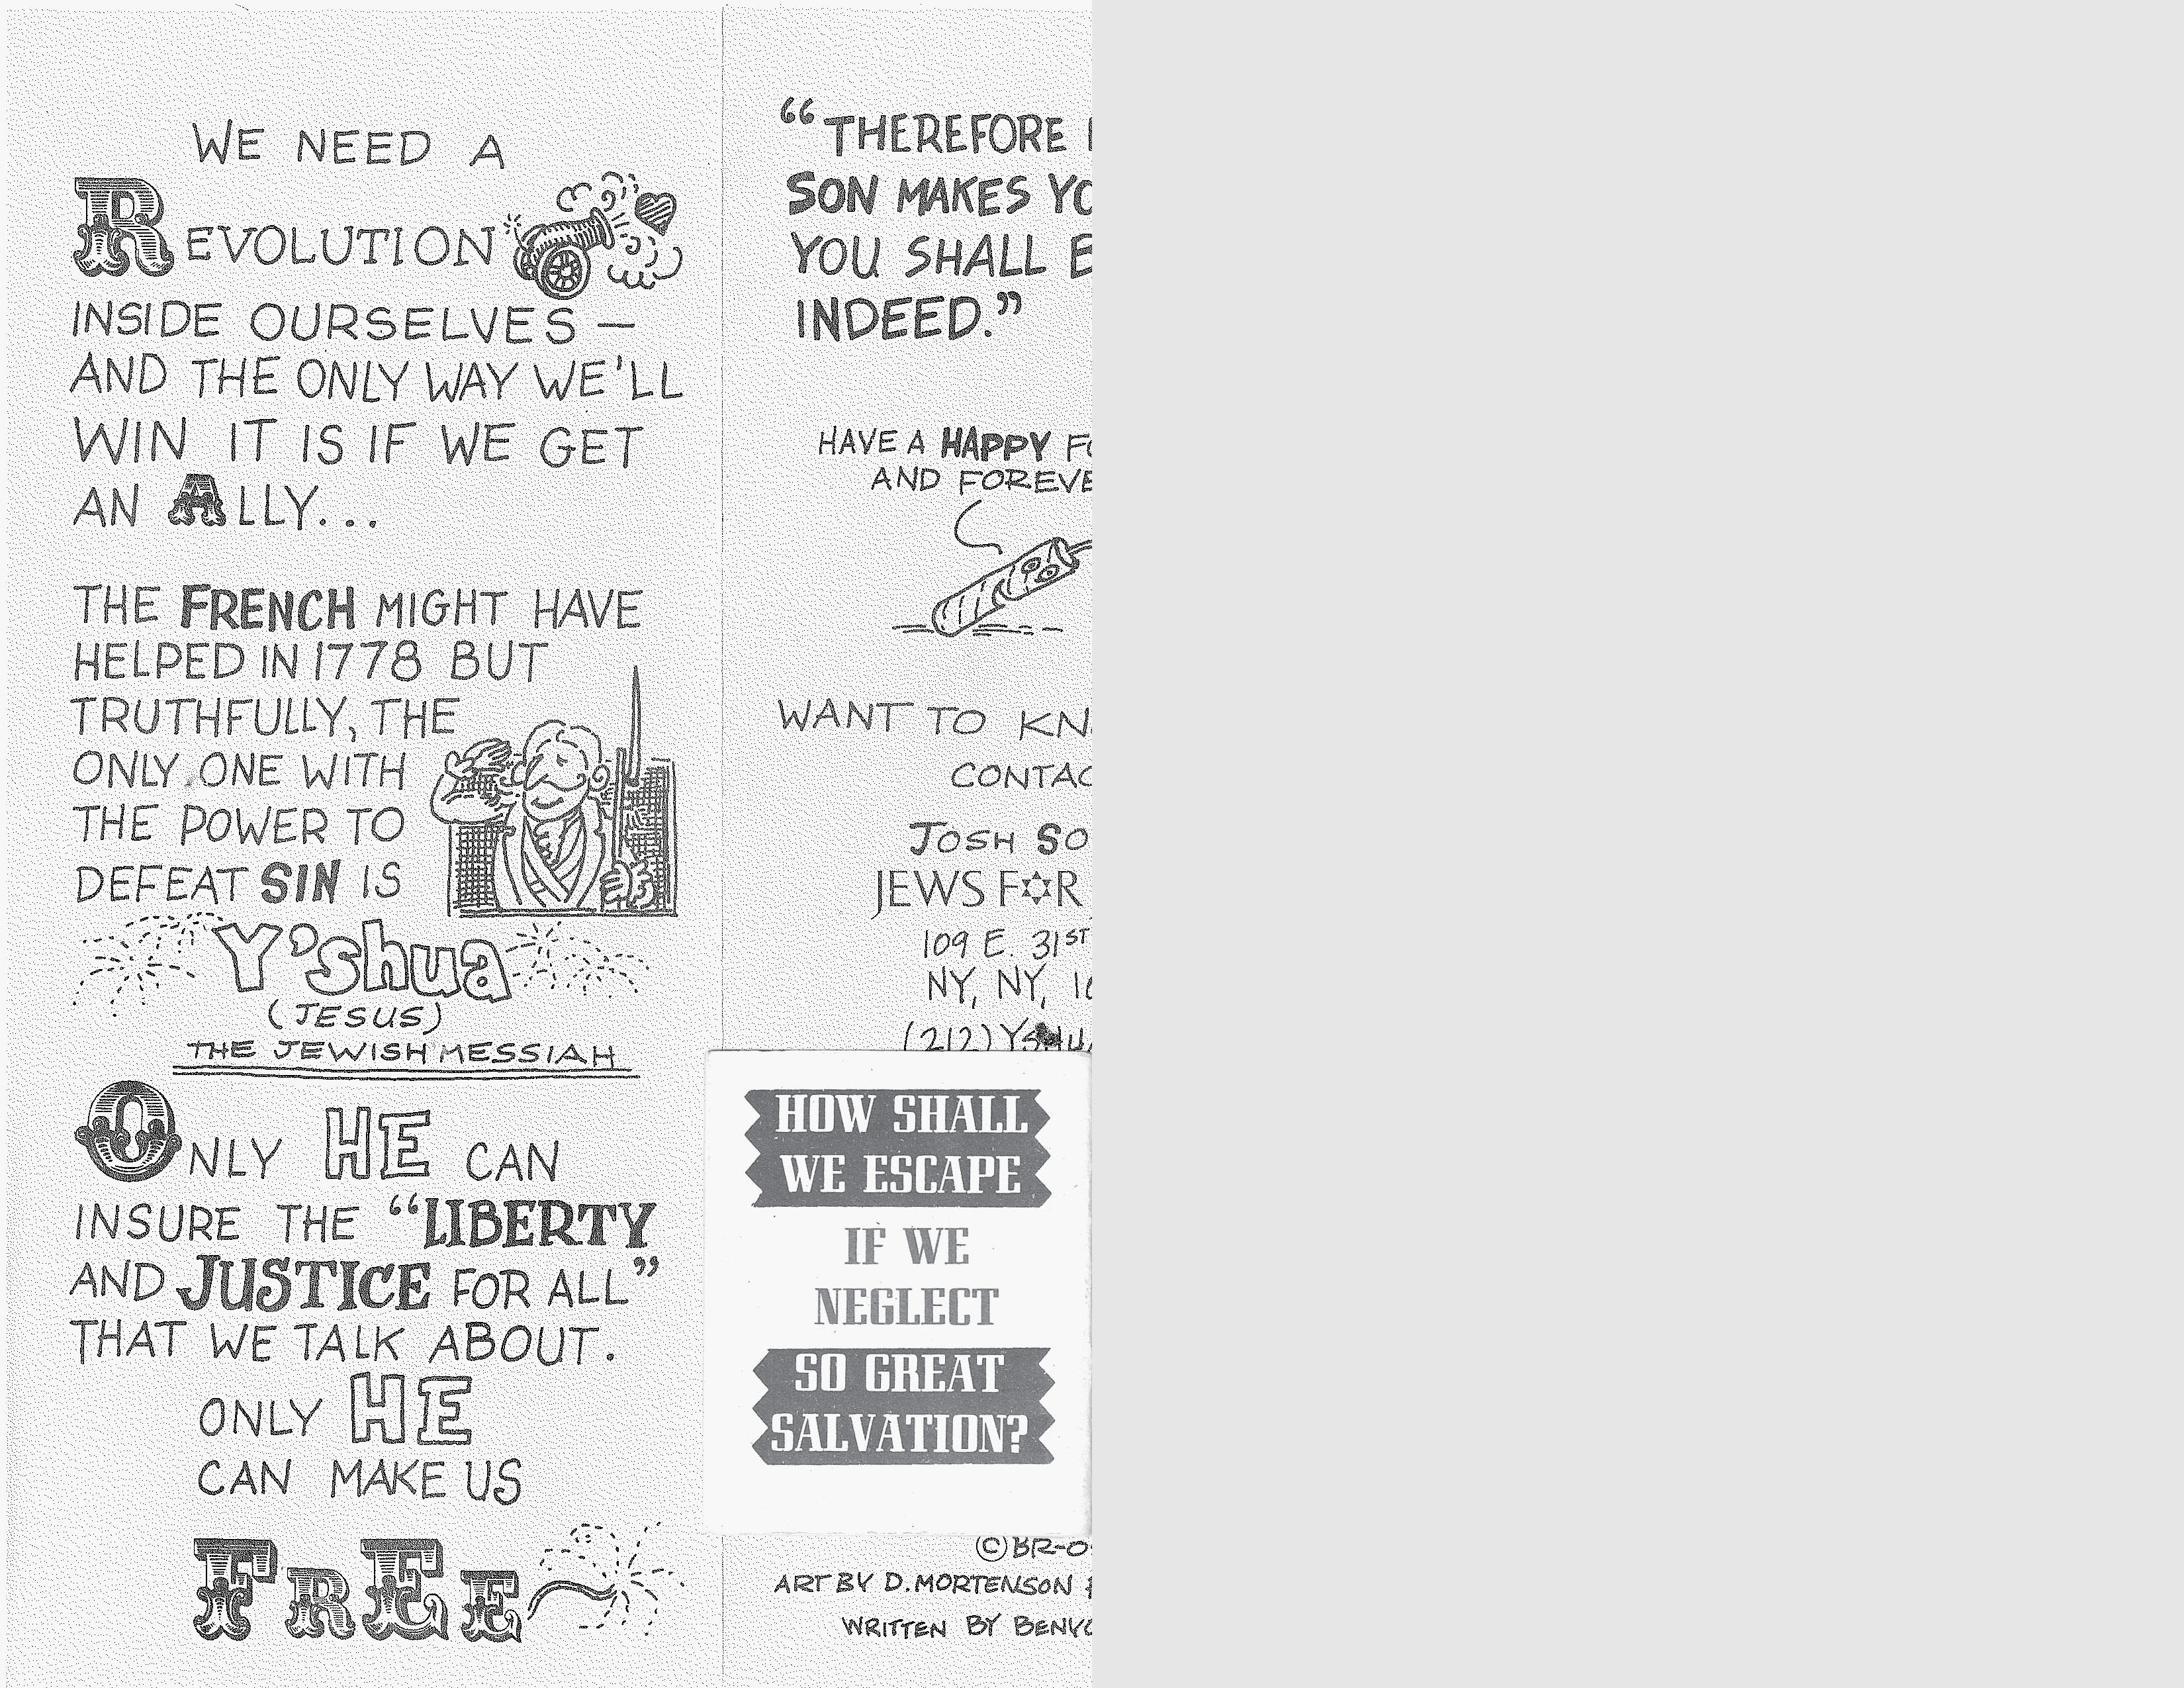 WE NEED A
REVOLUTION
INSIDE OURSELVES —
AND THE ONLY WAY WE'LL
WIN IT IS IF WE GET
AN ALLY...
THE FRENCH MIGHT HAVE
HELPED IN 1778 BUT
TRUTHFULLY, THE
ONLY ONE WITH
THE POWER TO
DEFEAT SIN IS
Y'shua
(JESUS)
THE JEWISH MESSIAH
ONLY HE CAN
INSURE THE “LIBERTY
AND JUSTICE FOR ALL”
THAT WE TALK ABOUT.
ONLY HE
CAN MAKE US
FREE
“THEREFORE
SON MAKES
YOU SHALL
INDEED.”
HAVE A HAPPY
AND
WANT TO
JOSH
JEWS FOR
109 E. 31ST
NY, NY,
(212)
HOW SHALL
WE ESCAPE
IF WE
NEGLECT
SO GREAT
SALVATION?
©BR-0
ART BY D. MORTENSON
WRITTEN BY